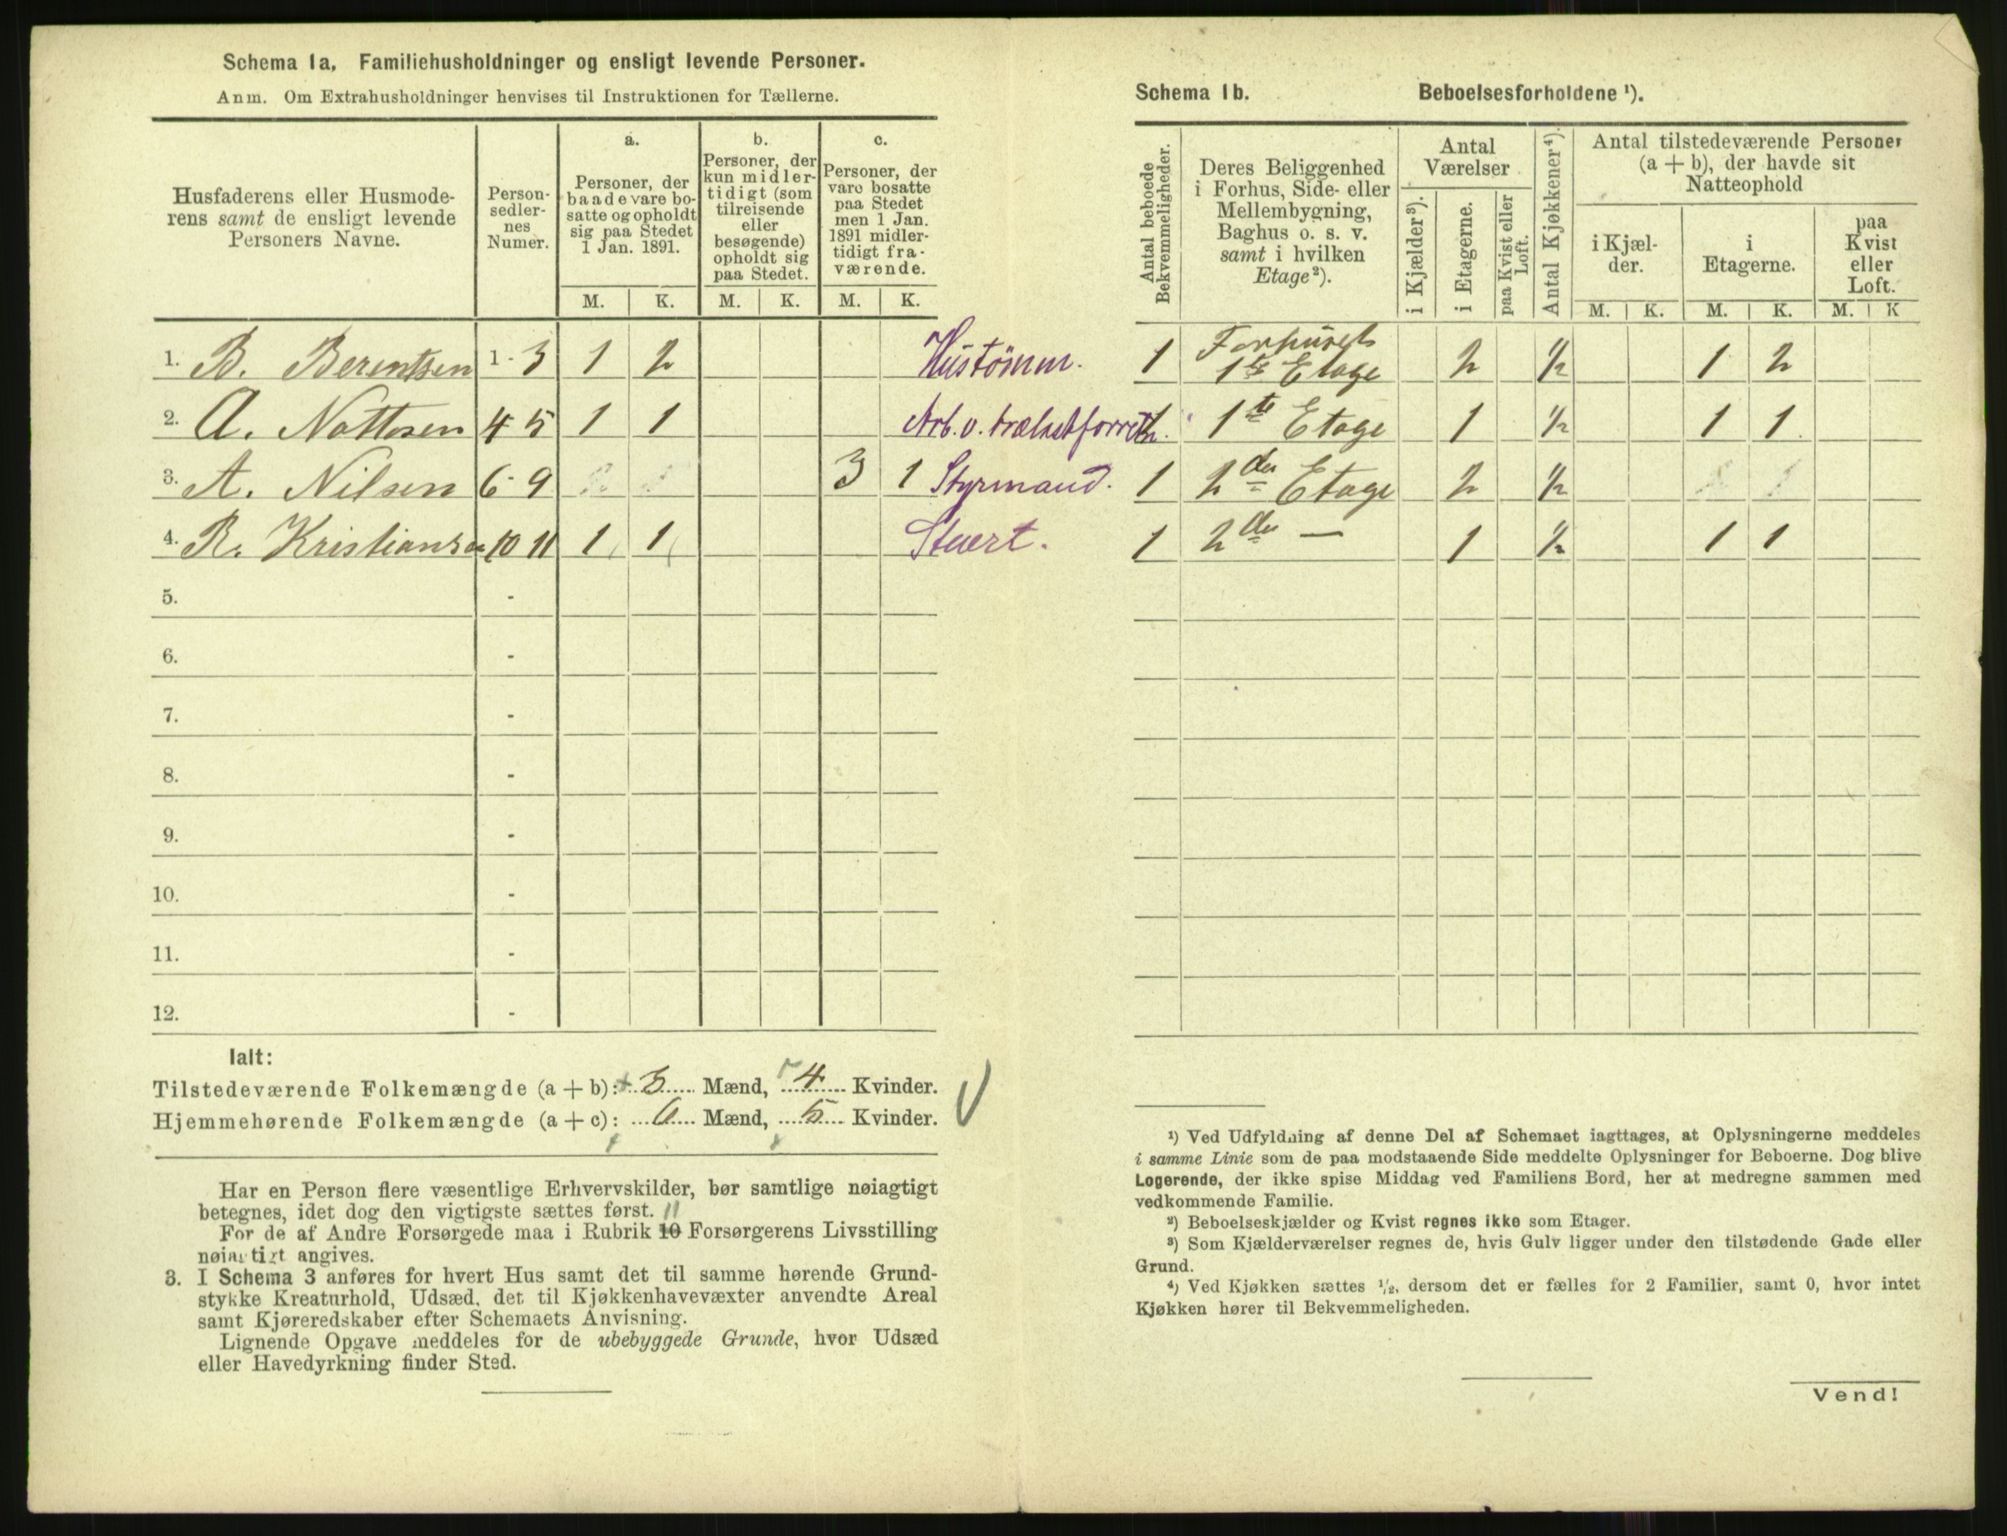 Schema 1a. Familiehusholdninger og ensligt levende Personer.
Anm. Om Extrahusholdninger henvises til Instruktionen for Tællerne.
Husfaderens eller Husmode-
rens samt de ensligt levende
Personers Navne.
Person-
sedler-
nes
Numer.
a.
Personer, der
baade vare bo-
satte og opholdt
sig paa Stedet
1 Jan. 1891.
b.
Personer, der
kun midler-
tidigt (som
tilreisende
eller
besøgende)
opholdt sig
paa Stedet.
c.
Personer, der
vare bosatte
paa Stedet
men 1 Jan.
1891 midler-
tidigt fra-
værende.
M. K. M. K. M. K.
1. B. Berentsen 1-3 1 2 Hustømm.
2. A. Nottosen 4 5 1 1 Arb. v.
3. A. Nilsen 6-9 3 1 Styrmand.
4. R. Kristiansen 10 11 1 1 Stuert.
5. -
6. -
7. -
8. -
9. -
10. -
11. -
12. -
Ialt:
Tilstedeværende Folkemængde (a + b): 3 Mænd, 4 Kvinder.
Hjemmehørende Folkemængde (a + c): 6 Mænd, 5 Kvinder.
Har en Person flere væsentlige Erhvervskilder, bør samtlige nøiagtigt
betegnes, idet dog den vigtigste sættes først. 11
For de af Andre Forsørgede maa i Rubrik 10 Forsørgerens Livsstilling
nøiagtigt angives.
3. I Schema 3 anføres for hvert Hus samt det til samme hørende Grund-
stykke Kreaturhold, Udsæd, det til Kjøkkenhavevæxter anvendte Areal
samt Kjøreredskaber efter Schemaets Anvisning.
Lignende Opgave meddeles for de ubebyggede Grunde, hvor Udsæd
eller Havedyrkning finder Sted.
Schema 1b. Beboelsesforholdene ¹).
Antal beboede
Bekvemmeligheder.
Deres Beliggenhed
i Forhus, Side- eller
Mellembygning,
Baghus o. s. v.
samt i hvilken
Etage²).
Antal
Værelser
i Kjælder³).
i Etagerne.
paa Kvist eller
Loft.
Antal Kjøkkener⁴).
Antal tilstedeværende Personer
(a + b), der havde sit
Natteophold
i Kjæl-
der.
i
Etagerne.
paa
Kvist
eller
Loft.
M. K. M. K. M. K
1 Forhusets
1ste Etage 2 ½ 1 2
1te Etage 1 ½ 1 1
1 2den Etage 2 ½
1 2den — 1 ½ 1 1
¹) Ved Udfyldning af denne Del af Schemaet iagttages, at Oplysningerne meddeles
i samme Linie som de paa modstaaende Side meddelte Oplysninger for Beboerne. Dog blive
Logerende, der ikke spise Middag ved Familiens Bord, her at medregne sammen med
vedkommende Familie.
²) Beboelseskjælder og Kvist regnes ikke som Etager.
³) Som Kjælderværelser regnes de, hvis Gulv ligger under den tilstødende Gade eller
Grund.
⁴) Ved Kjøkken sættes ½, dersom det er fælles for 2 Familier, samt 0, hvor intet
Kjøkken hører til Bekvemmeligheden.
Vend!